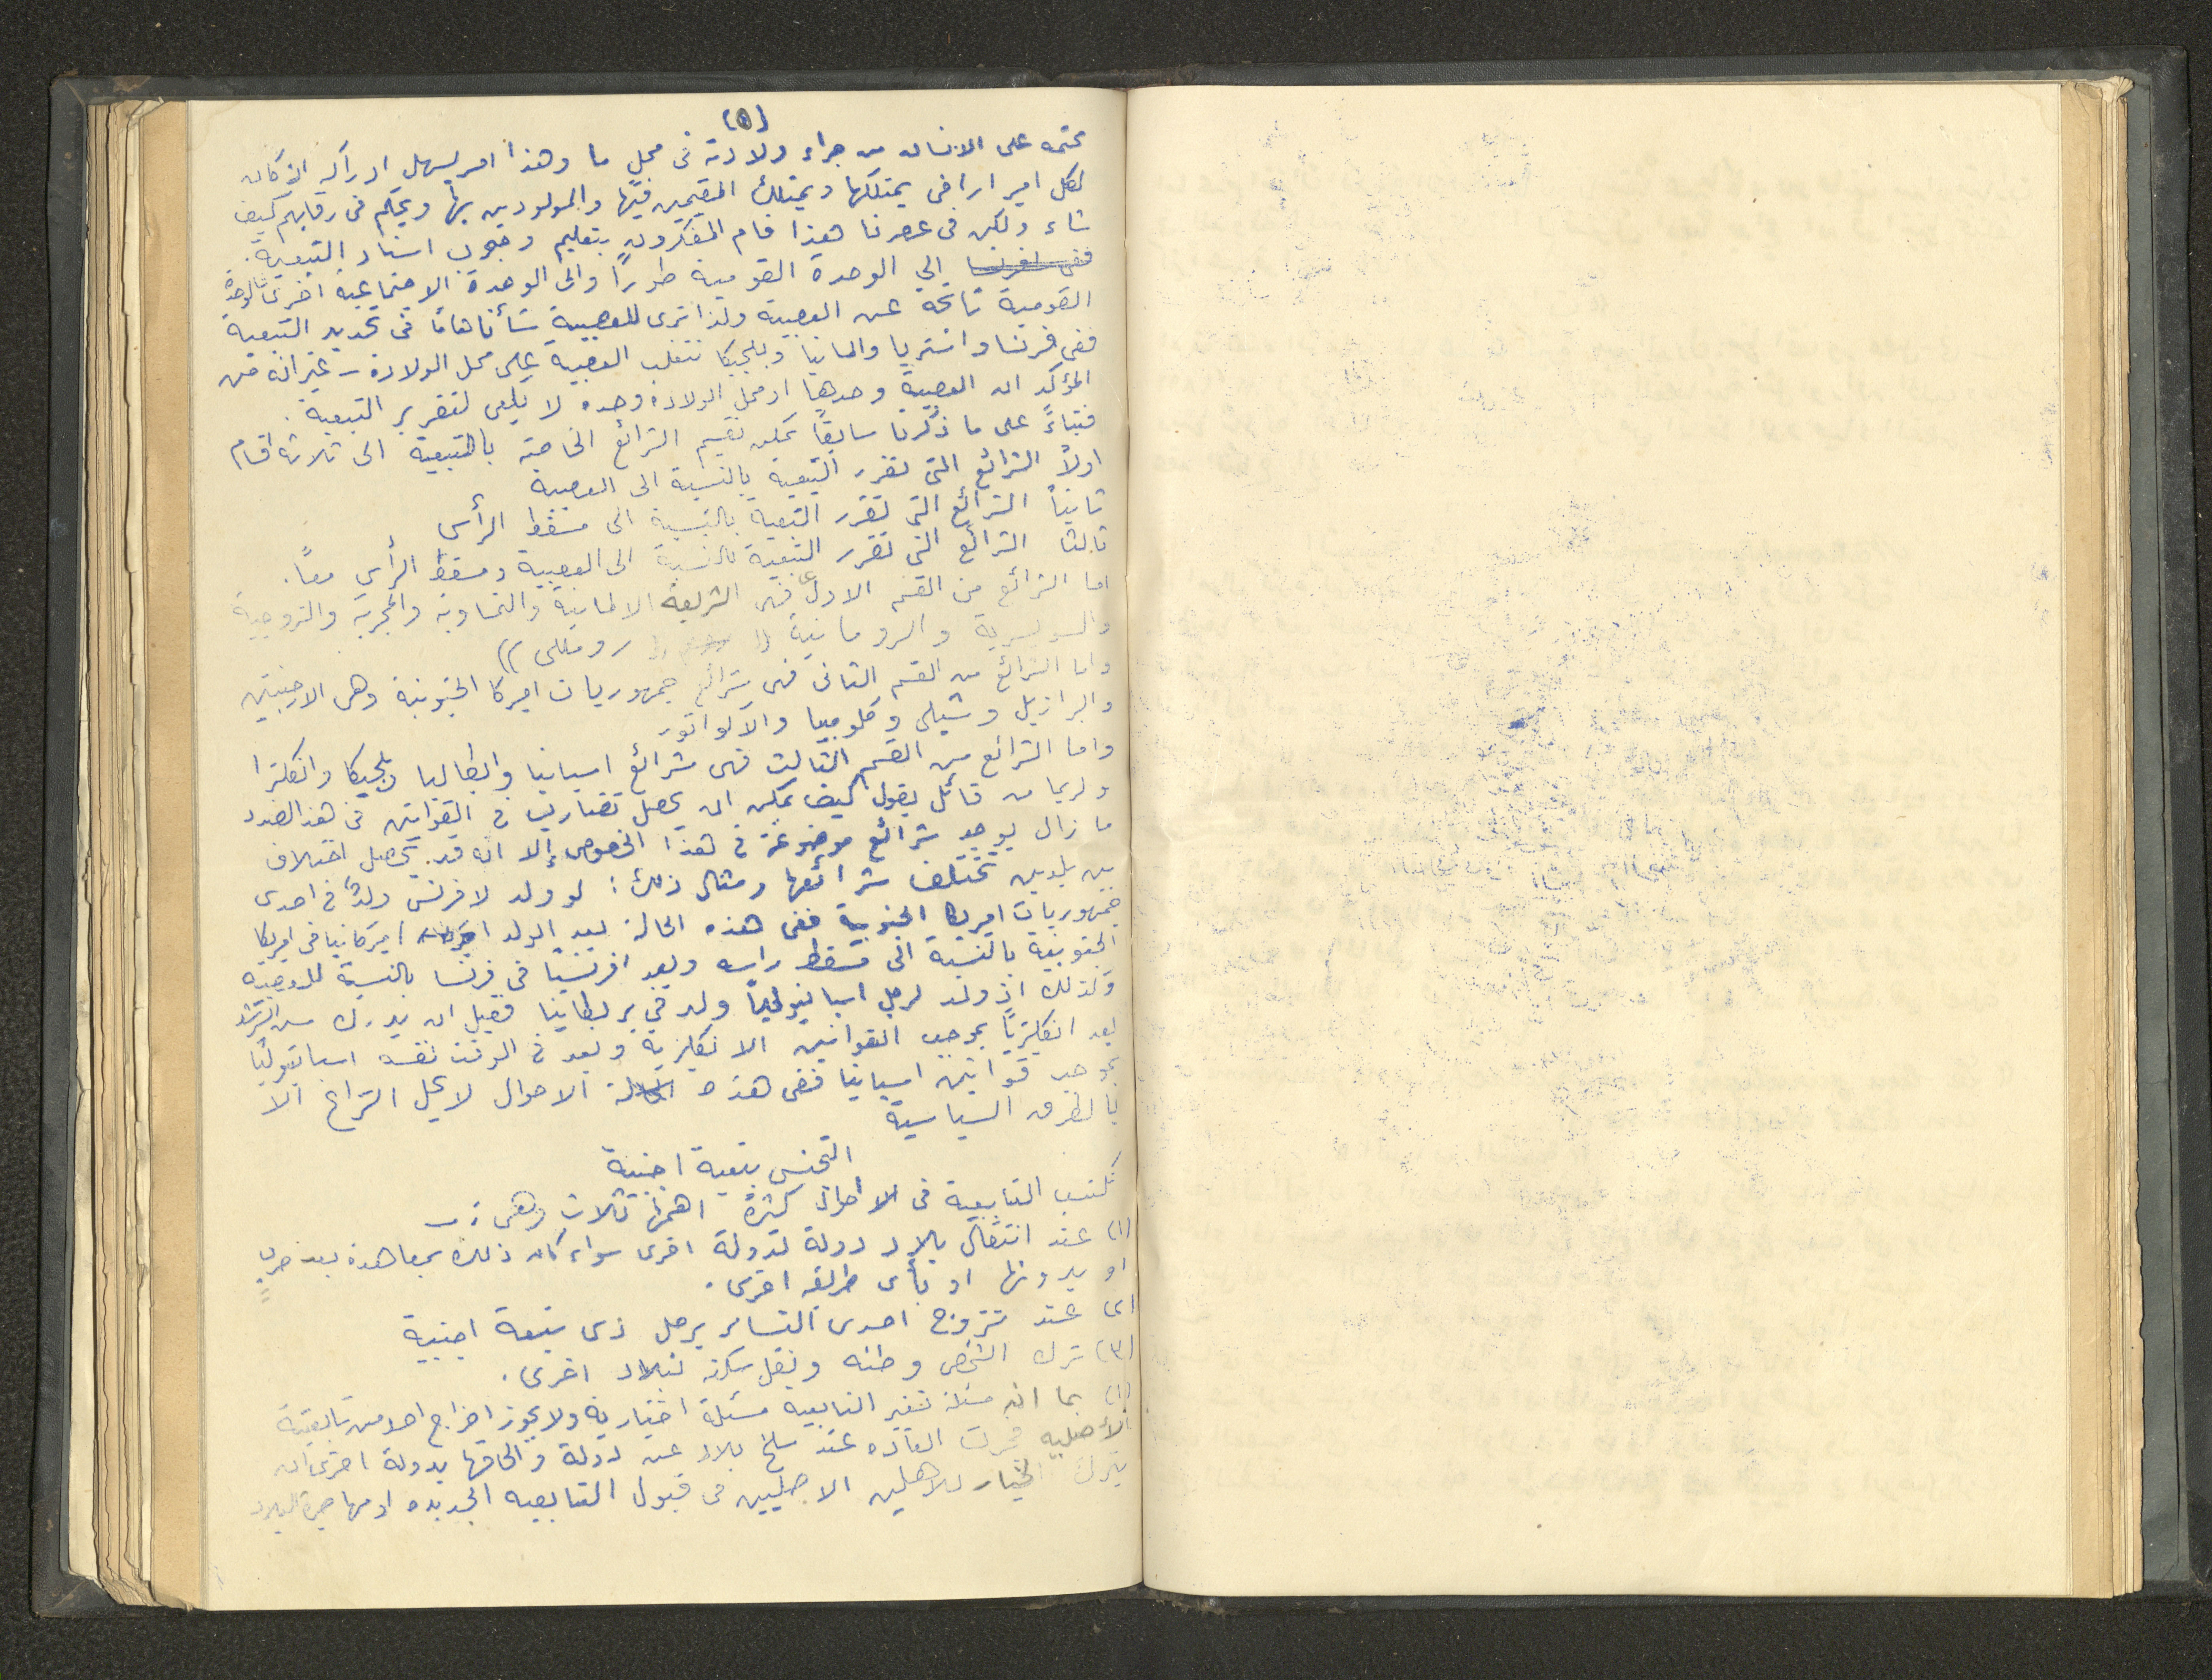 (٥)
محتمه على الانسان من جراء ولادته فى محلٍ ما وهذا امر يسهل ادراكه اذ كان
لكل امير اراضى يمتلكها ويمتلك المقيمين فيها والمولودين بها ويحكم فى رقابهم كيف
شاء ولكن فى عصرنا هذا قام المفكرون بتعليم وجوب اسناد التبعية.
ففى افرنسا الى الوحدة القومية طوراً والى الوحدة الاجتماعية اخرى فالوحدة
القومية ناتجة عن العصبية ولذا ترى للعصبية شأناً هاماً فى تحديد التبعية
ففى فرنسا واستريا والمانيا وبلجيكا تتغلب العصبية على محل الولادة – غير انه من
المؤكد ان العصبية وحدها او محل الولادة وحده لا يكفى لتقرير التبعية.
فبناءً على ما ذكرنا سابقاً يمكن تقسيم الشرائع الخاصة بالتبعية الى ثلاثة اقسام
اولاً الشرائع التى تقرر التبعية بالنسبة الى العصبية
ثانياً الشرائع التى تقرر التبعية بالنسبة الى مسقط الرأس
ثالثاً الشرائع التى تقرر التبعية بالنسبة الى العصبية ومسقط الرأس معاً.
اما الشرائع من القسم الاول فهى الشريعة الالمانية والنمساوية والمجرية والنروجية
والسويسرية والرومانية
واما الشرائع من القسم الثانى فهى شرائع جمهوريات اميركا الجنوبية وهى الارجنتين
والبرازيل وشيلى وكلومبيا والاكواتور
واما الشرائع من القسم الثالث فهى شرائع اسبانيا وايطاليا وبلجيكا وانكلترا
ولربما من قائل يقول كيف يمكن ان يحصل تضارب فى القوانين فى هذا الصدد
ما زال يوجد شرائع موضوعة فى هذا الخصوص إلا انه قد يحصل اختلاف
بين بلدين تختلف شرائعها ومثال ذلك: لو ولد لافرنسى ولدٌ فى احدى
جمهوريات امريكا الجنوبية ففى هذه الحالة يعد الولد اميركانيا فى امريكا
الجنوبية بالنسبة الى مسقط راسه ويعد افرنسيًا فى فرنسا بالنسبة للعصبية
وكذلك اذ ولد لرجل اسبانيولى ولد فى بريطانيا فقبل ان يدرك سن الرشد
يعد انكليزياً بموجب القوانين الانكليزية ويعد فى الوقت نفسه اسبانيوليًا
بموجب قوانين اسبانيا ففى هذه الحالة الاحوال لا يحل النزاع الا
بالطرق السياسية
التجنس بتبعية اجنبية
تكتسب التابعية فى الاحوال كثيرة اهمها ثلاث وهى :-
(١) عند انتقال بلاد دولة لدولة اخرى سواء كان ذلك بمعاهدة بعد حربٍ
او بدونها او بأى طريقه اخرى.
(٢) عند تتزوج احدى النساء برجل ذى تبعة اجنبية
(٣) ترك الشخص وطنه ونقل سكنه لبلاد اخرى.
(١) بما ان مسئلة تغير التابعيه مسئلة اختيارية ولا يجوز اخراج احد من تابعيته
الأصليه فجرت العاده عند سلخ بلاد عن دولة والحاقها بدولة اخرى ان
يترك الخيار للاهلين الاصليين فى قبول التابعيه الجديده او مهاجرة البلاد